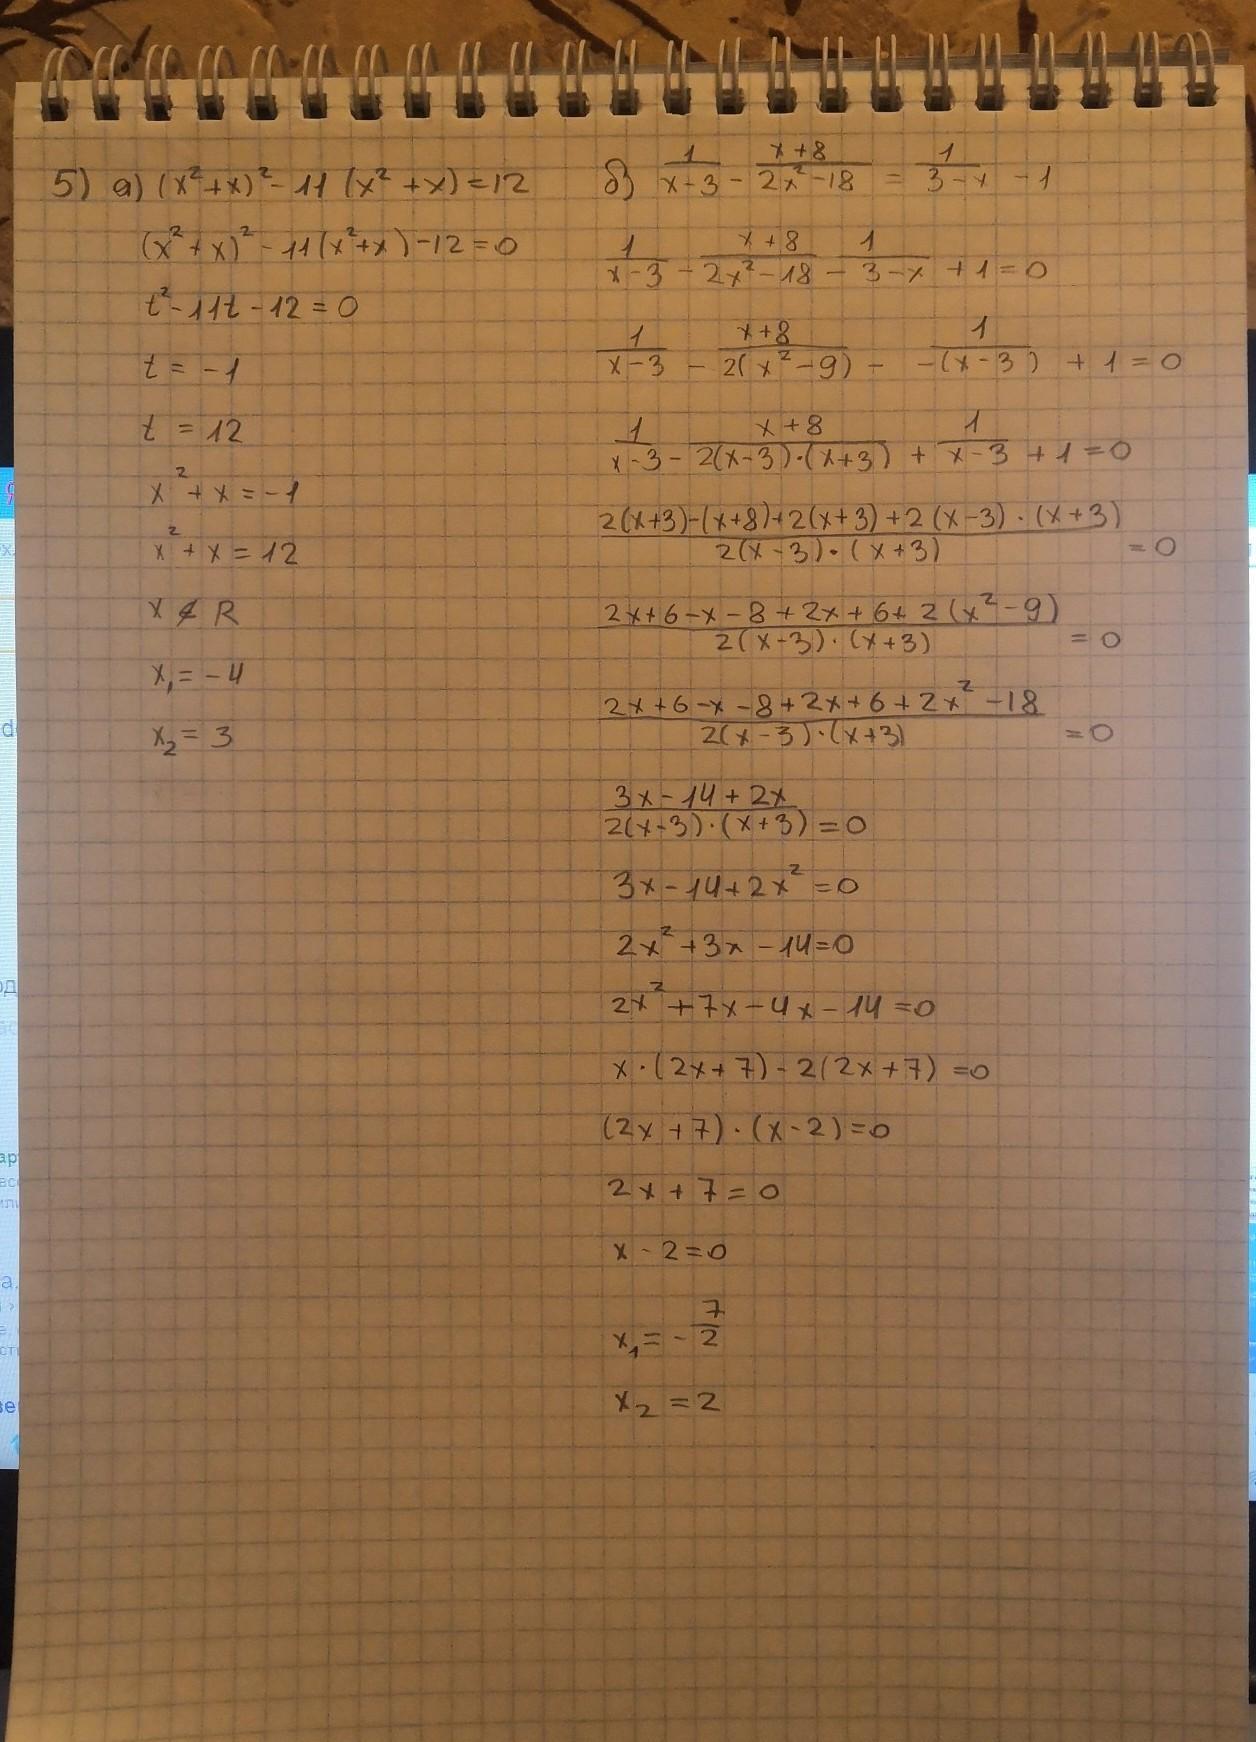 5) а) (x²+x)²-11(x²+x)=12
(x²+x)²-11(x²+x)-12=0
t²-11t-12=0
t=-1
t=12
x²+x=-1
x²+x=12
x∉R
x₁=-4
x₂=3
б) 1/(x-3) - (x+8)/(2x²-18) = 1/(3-x) - 1
1/(x-3) - (x+8)/(2x²-18) - 1/(3-x) + 1 = 0
1/(x-3) - (x+8)/(2(x²-9)) - 1/(-(x-3)) + 1 = 0
1/(x-3) - (x+8)/(2(x-3)·(x+3)) + 1/(x-3) + 1 = 0
(2(x+3)-(x+8)+2(x+3)+2(x-3)·(x+3))/(2(x-3)·(x+3)) = 0
(2x+6-x-8+2x+6+2(x²-9))/(2(x-3)·(x+3)) = 0
(2x+6-x-8+2x+6+2x²-18)/(2(x-3)·(x+3)) = 0
(3x-14+2x)/(2(x-3)·(x+3)) = 0
3x-14+2x²=0
2x²+3x-14=0
2x²+7x-4x-14=0
x·(2x+7)-2(2x+7)=0
(2x+7)·(x-2)=0
2x+7=0
x-2=0
x₁=-7/2
x₂=2